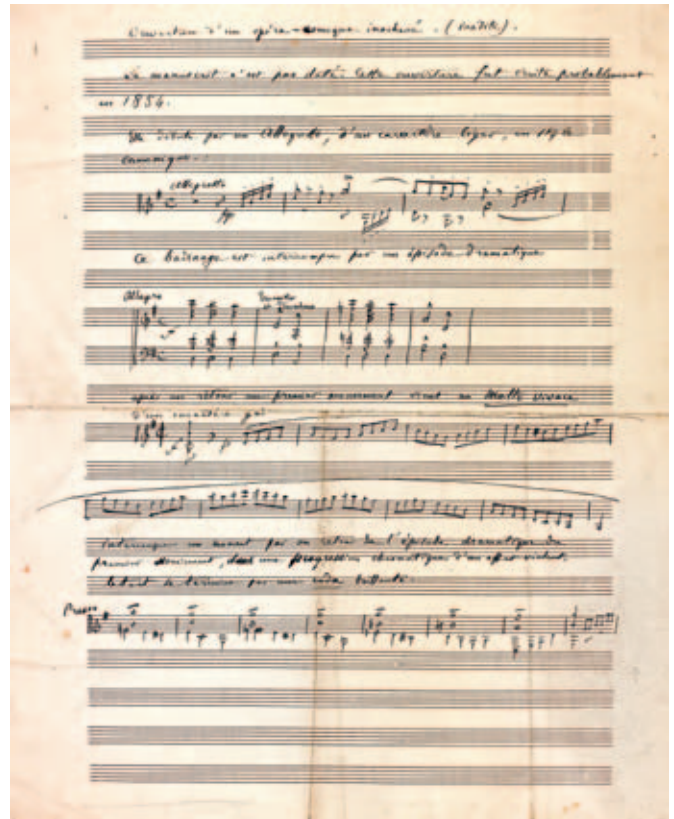 Ouverture d'un opéra-comique inachevé. (inédite).
Le manuscrit n'est pas daté. Cette ouverture fut écrite probablement
en 1854.
Elle débute par un Allegretto, d'un caractère léger, en style
canonique.:
Allegretto
Ce badinage est interrompu par un épisode dramatique
Allegro
après un retour au premier mouvement vient un Molto vivace
d'un caractère gai
interrompu un moment par un retour de l'épisode dramatique du
premier mouvement, dans une progression chromatique d'un effet violent.
Le tout se termine par une coda brillante.
Presto